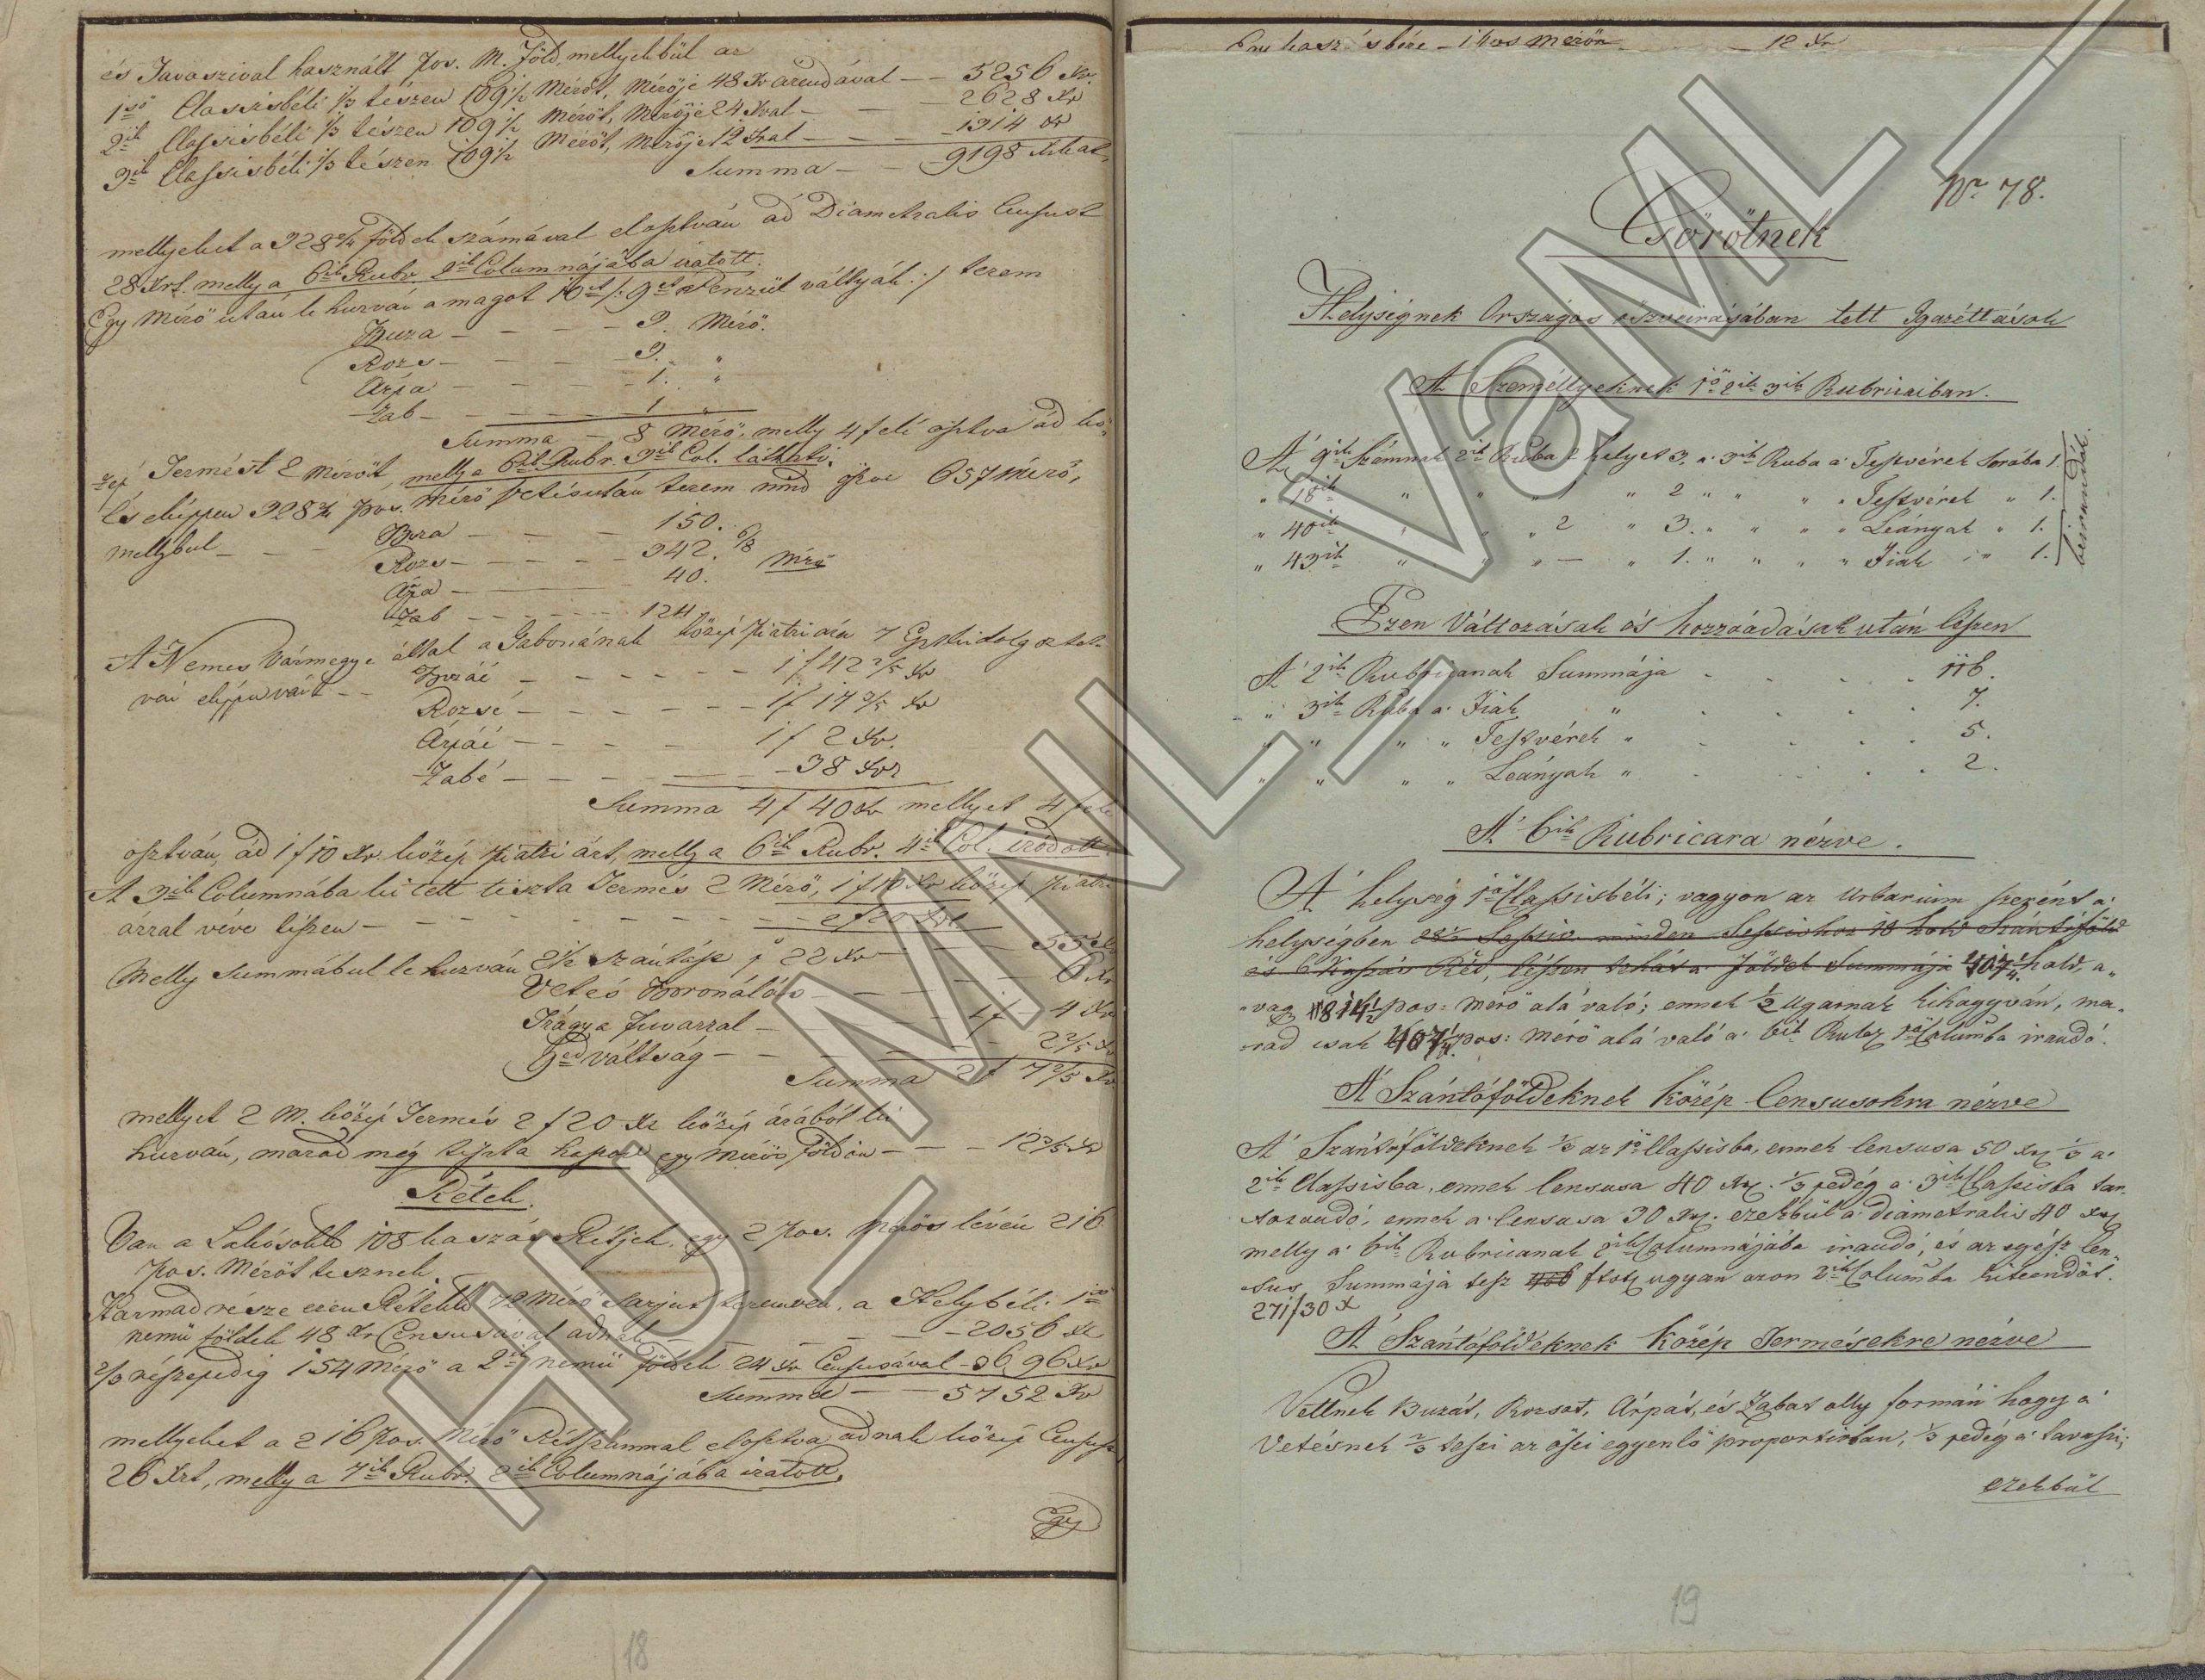 és Tavaszival használt Pos. M. Föld, mellyekbül az
1ső Classisbéli 1/3 tészen 109 1/2 Mérőt, Mérője 48 Xr arendával — — 5256 Xr.
2ik Classisbéli 1/3 tészen 109 1/2 Mérőt, Mérője 24 Xral — — 2628 Xr
3ik Classisbéli 1/3 tészen 109 1/2 Mérőt, Mérője 12 Xral — — 1314 Xr
Summa — — 9198
mellyeket a 328 2/4 földek számával elosztván ád Diametralis Censust
28 Xrt. melly a 6ik Rubr. 2ik Columnájába iratott.
Egy Mérő után le huzván a magot 10et /: 9et Pénzül váltyák :/ terem
Buza — — — 3. Mérő.
Rozs — — — 3. "
Árpa — — — 1. "
Zab — — — 1 "
Summa — 8 Mérő, melly 4 felé osztva ád kö-
zép Termést 2 Mérőt, melly a 6ik Rubr. 3ik Col. láthatú.
És eképpen 328 2/4 Pos. Mérő Vetés után terem mind öszve 657 Mérő,
mellybul — — Buza — — 150.
Rozs — — 342. 6/8 Mérő
Árpa — — 40.
Zab — — 124
A Nemes Vármegye által a Gabonának közép Piatzi ára 7 Eszt. kidolgoztat-
ván eképpen vált — — Buzáé — — 1 f 42 2/5 Xr
Rozsé — — 1 f 17 3/5 Xr
Árpáé — — 1 f 2 Xr.
Zabé — — 38 Xr
Summa 4 f 40 Xr mellyet 4 felé
osztván, ád 1 f 10 Xr közép piatzi árt, melly a 6ik Rubr. 4ik Col. iródott
A 3ik Columnába ki tett tiszta Termés 2 Mérő, 1 f 10 Xr közép piatzi
árral véve tészen — — — 2 f 20 Xrt
Melly Summábul le huzván 2 1/2 szántást p 22 Xr — — 55 Xr
Vetés Boronálás — — 6 Xr
Trágya fuvarral — 1 f — 4 Xr
9ed váltság — — 2 2/5 Xr
Summa 2 f 7 2/5 Xr
mellyet 2 M. közép Termés 2 f 20 Xr közép árából ki
huzván, marad még tiszta haszon egy Mérős földön — — 12 3/5 Xr
Rétek.
Van a Lakosokk 108 kaszás Rétjek, egy 2 Pos. Mérős lévén 216
Pos. Mérőt tesznek.
Harmad része ezen Réteknek 72 Mérő Sarjut teremvén, a Helybéli 1ső
nemü földek 48 Xr Censusával adnak — — 2056 Xr
2/3 része pedig 154 Mérő a 2ik nemü földek 24 Xr Censusával — 3696 Xr
Summa — — 5752 Xr
mellyeket a 216 Pos. Mérő Rétszámmal elosztva adnak közép Censust
26 Xrt, melly a 7ik Rubr. 2ik Columnájába iratott.
Egy
18
Egy kaszás bére — 1 Pos Mérőn — — 12 Xr
Nr. 78.
Csörötnek
Helységnek Országos öszveirásában tett Igazéttások
A' Személlyeknek 1ő 2ik 3ik Rubricaiban.
A' 9ik Számnak 2ik Ruba 2 helyet 3, a' 3ik Ruba a' Testvérek Sorába 1.
" 18ik " " " 1 " 2 " " " " Testvérek " 1.
" 40ik " " " 2 " 3. " " " " Leányak " 1.
" 43ik " " " — " 1. " " " " Fiak " 1.
beirandók.
Ezen Változások és hozzáadások után lészen
A' 2ik Rubricanak Summája . . . . 116.
" 3ik Ruba a' Fiak " . . . . 7.
" " " " Testvérek " . . . . 5.
" " " " Leányak " . . . . 2.
A' 6ik Rubricara nézve.
A' helység 1ő Classisbéli; vagyon az Urbarium szerént a'
helységben 28 1/2 Sessio. minden Sessiohoz 18 hold Szántóföld
és 6 Kaszás Rét, lészen tehát a' Földek Summája 407 1/4 hold, a-
vag 814 1/2 pos: mérő alá való; ennek 1/2 Ugarnak kihagyván, ma-
rad csak 407 1/4 pos: mérő alá való a' 6ik Rubr 1ő Columba irandó.
A' Szántóföldeknek Közép Censusokra nézve
A' Szántóföldeknek 1/3 az 1ő Classisba, ennek Censusa 50 Xr, 1/3 a'
2ik Classisba, ennek Censusa 40 Xr. 1/3 pedég a' 3ik Classisba tar-
tozandó, ennek a' Censusa 30 Xr. ezekbül a' diametralis 40 Xr
melly a' 6ik Rubricanak 2ik Columnájába irandó, és az egész Cen-
sus Summája tesz 406 ftot, ugyan azon 2ik Columba kiteendőt.
271 f 30 X
A' Szántóföldéknek Közép Termésekre nézve
Vettnek Buzát, Rozsot, Árpát, és Zabot olly formán hogy a'
Vetésnek 2/3 teszi az őszi egyenlő proportioban, 1/3 pedég a' tavaszi;
ezekbül
19
HU MNL VaML